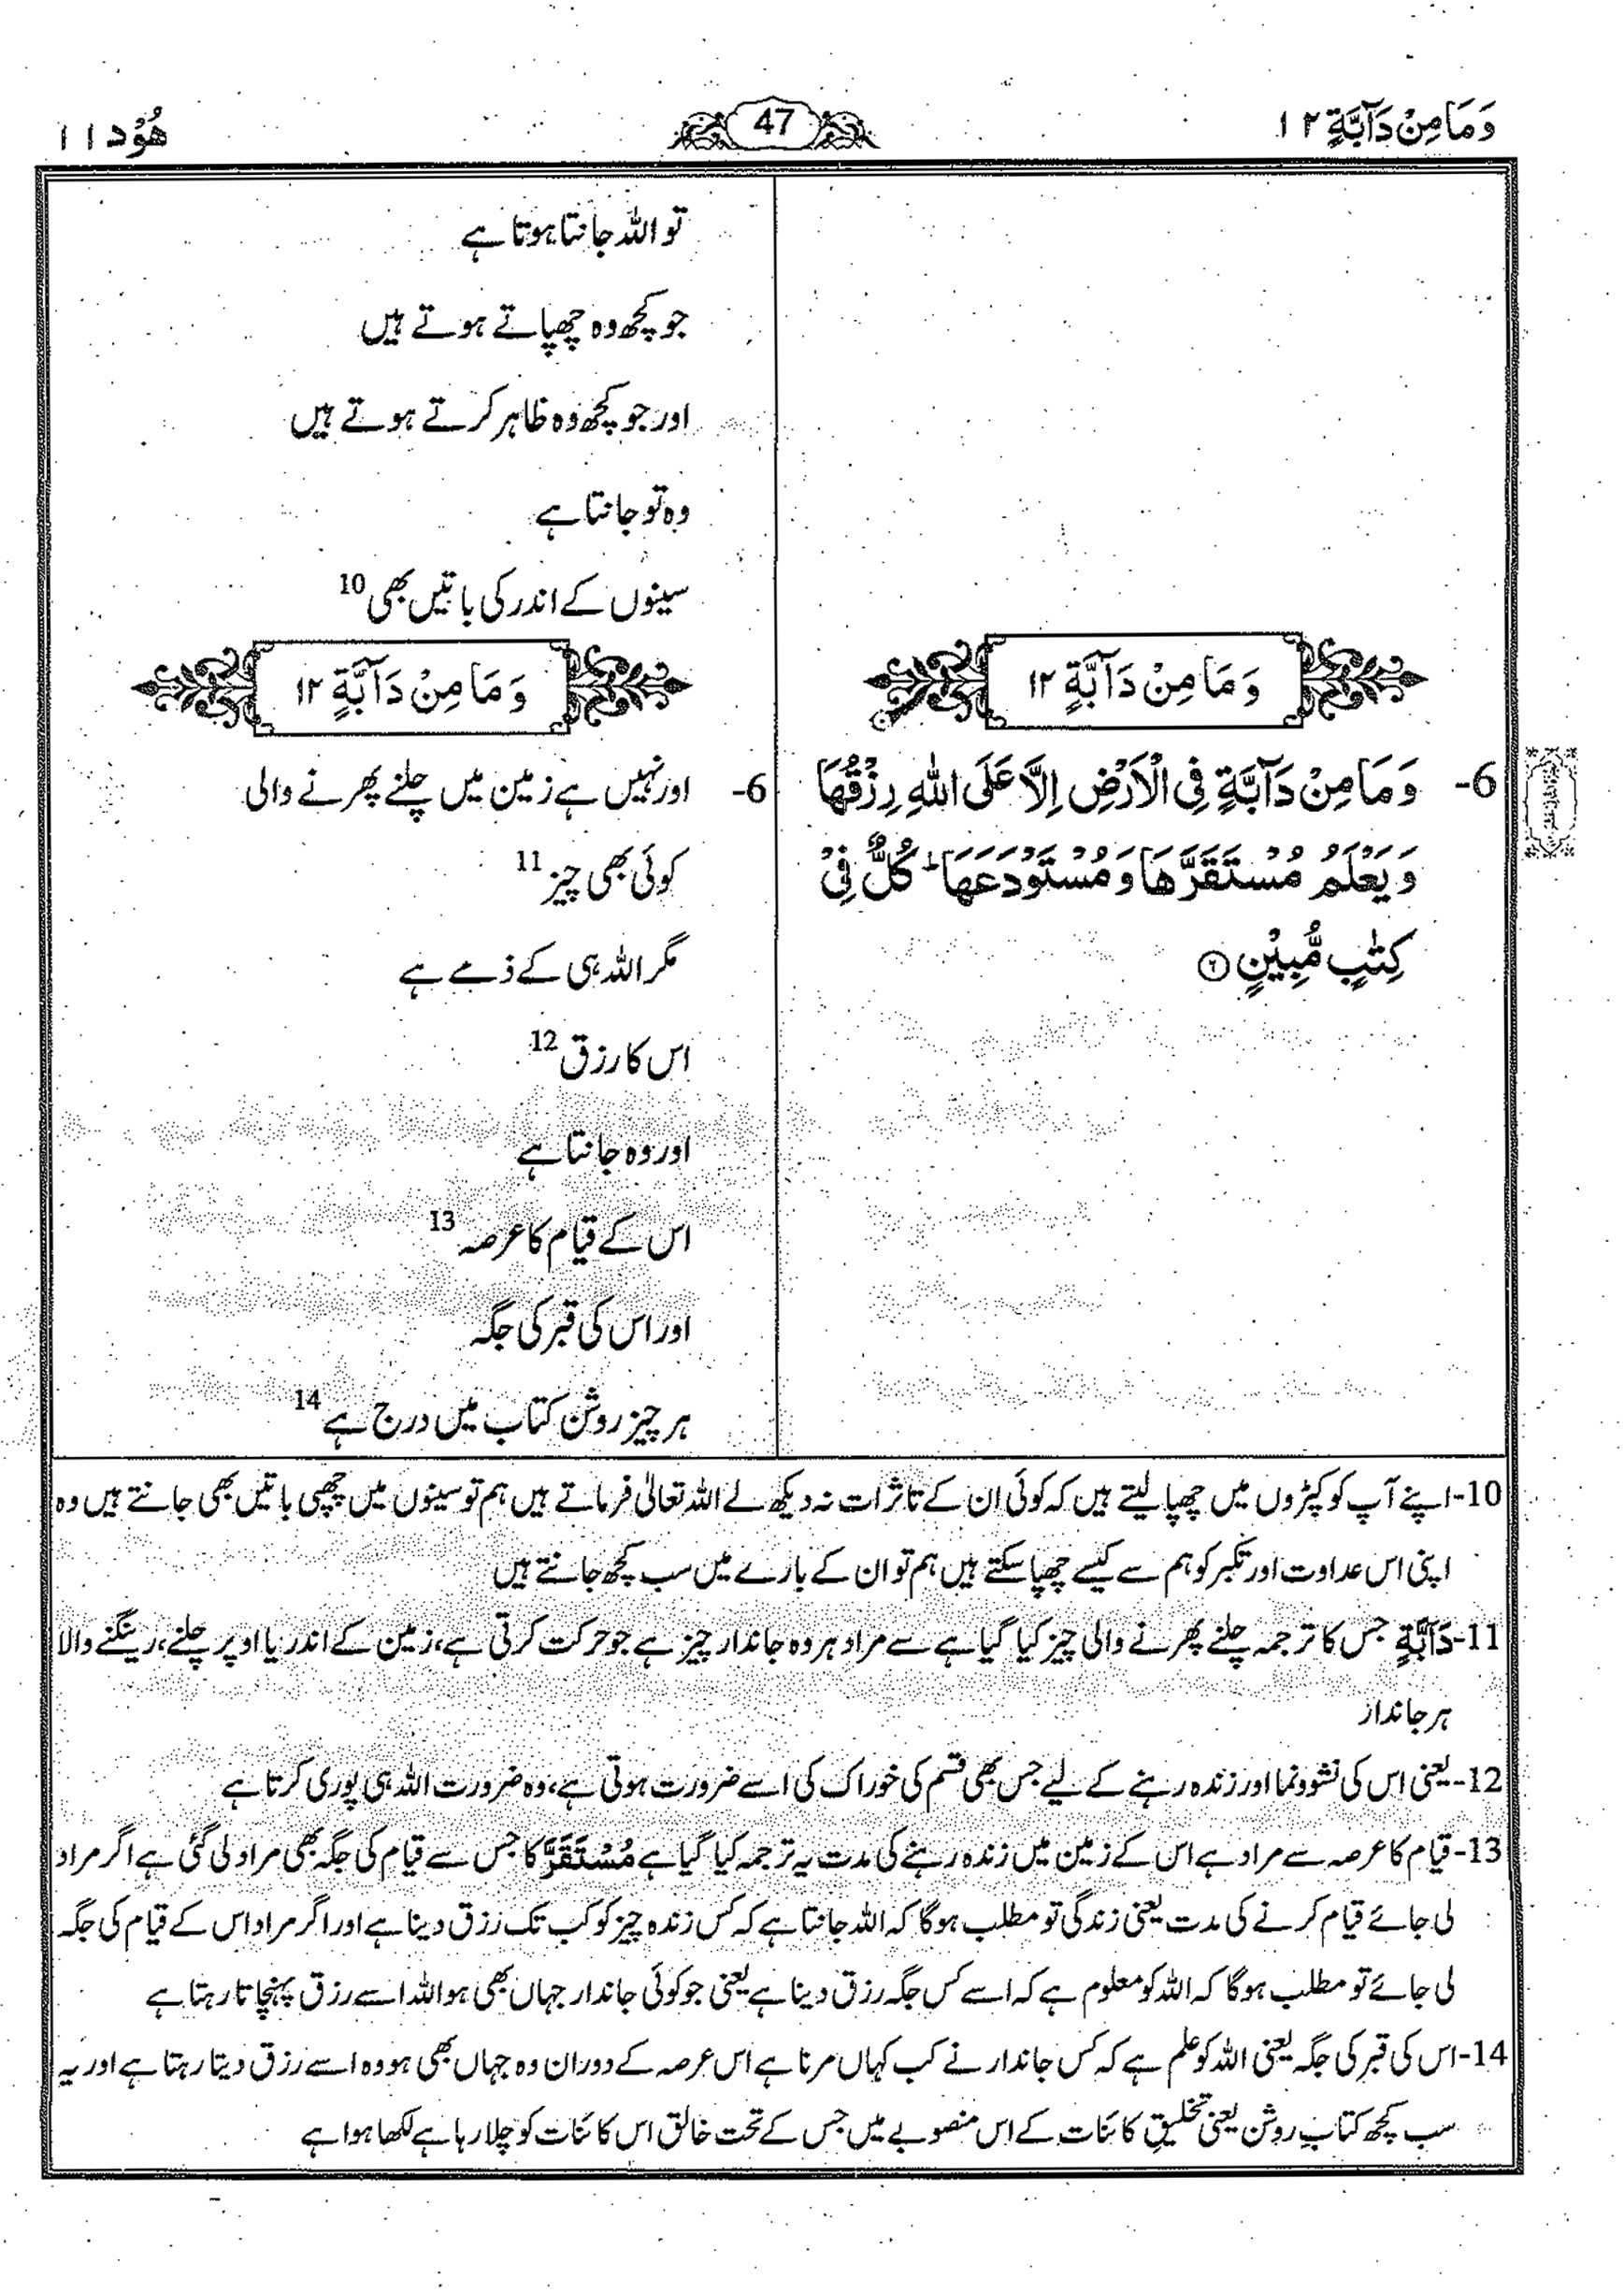 وَمَا مِنْ دَآبَّةٍ ۱۲
47
هُوْد ۱۱
تو اللہ جانتا ہوتا ہے
جو کچھ وہ چھپاتے ہوتے ہیں
اور جو کچھ وہ ظاہر کرتے ہوتے ہیں
وہ تو جانتا ہے
سینوں کے اندر کی باتیں بھی 10
وَمَا مِنْ دَآبَّةٍ ۱۲
وَمَا مِنْ دَآبَّةٍ ۱۲
6- وَمَا مِنْ دَآبَّةٍ فِي الْاَرْضِ اِلَّا عَلَى اللّٰهِ رِزْقُهَا
وَيَعْلَمُ مُسْتَقَرَّهَا وَمُسْتَوْدَعَهَا ؕ كُلٌّ فِيْ
كِتٰبٍ مُّبِيْنٍ ۶
6- اور نہیں ہے زمین میں چلنے پھرنے والی
کوئی بھی چیز 11
مگر اللہ ہی کے ذمے ہے
اس کا رزق 12
اور وہ جانتا ہے
اس کے قیام کا عرصہ 13
اور اس کی قبر کی جگہ
ہر چیز روشن کتاب میں درج ہے 14
10- اپنے آپ کو کپڑوں میں چھپا لیتے ہیں کہ کوئی ان کے تاثرات نہ دیکھ لے اللہ تعالیٰ فرماتے ہیں ہم تو سینوں میں چھپی باتیں بھی جانتے ہیں وہ
اپنی اس عداوت اور تکبر کو ہم سے کیسے چھپا سکتے ہیں ہم تو ان کے بارے میں سب کچھ جانتے ہیں
11- دَآبَّةٍ جس کا ترجمہ چلنے پھرنے والی چیز کیا گیا ہے سے مراد ہر وہ جاندار چیز ہے جو حرکت کرتی ہے، زمین کے اندر یا اوپر چلنے، رینگنے والا
ہر جاندار
12- یعنی اس کی نشوونما اور زندہ رہنے کے لیے جس بھی قسم کی خوراک کی اسے ضرورت ہوتی ہے، وہ ضرورت اللہ ہی پوری کرتا ہے
13- قیام کا عرصہ سے مراد ہے اس کے زمین میں زندہ رہنے کی مدت یہ ترجمہ کیا گیا ہے مُسْتَقَرَّ کا جس سے قیام کی جگہ بھی مراد لی گئی ہے اگر مراد
لی جائے قیام کرنے کی مدت یعنی زندگی تو مطلب ہوگا کہ اللہ جانتا ہے کہ کس زندہ چیز کو کب تک رزق دینا ہے اور اگر مراد اس کے قیام کی جگہ
لی جائے تو مطلب ہوگا کہ اللہ کو معلوم ہے کہ اسے کس جگہ رزق دینا ہے یعنی جو کوئی جاندار جہاں بھی ہو اللہ اسے رزق پہنچاتا رہتا ہے
14- اس کی قبر کی جگہ یعنی اللہ کو علم ہے کہ کس جاندار نے کب کہاں مرنا ہے اس عرصہ کے دوران وہ جہاں بھی ہو وہ اسے رزق دیتا رہتا ہے اور یہ
سب کچھ کتابِ روشن یعنی تخلیقِ کائنات کے اس منصوبے میں جس کے تحت خالق اس کائنات کو چلا رہا ہے لکھا ہوا ہے